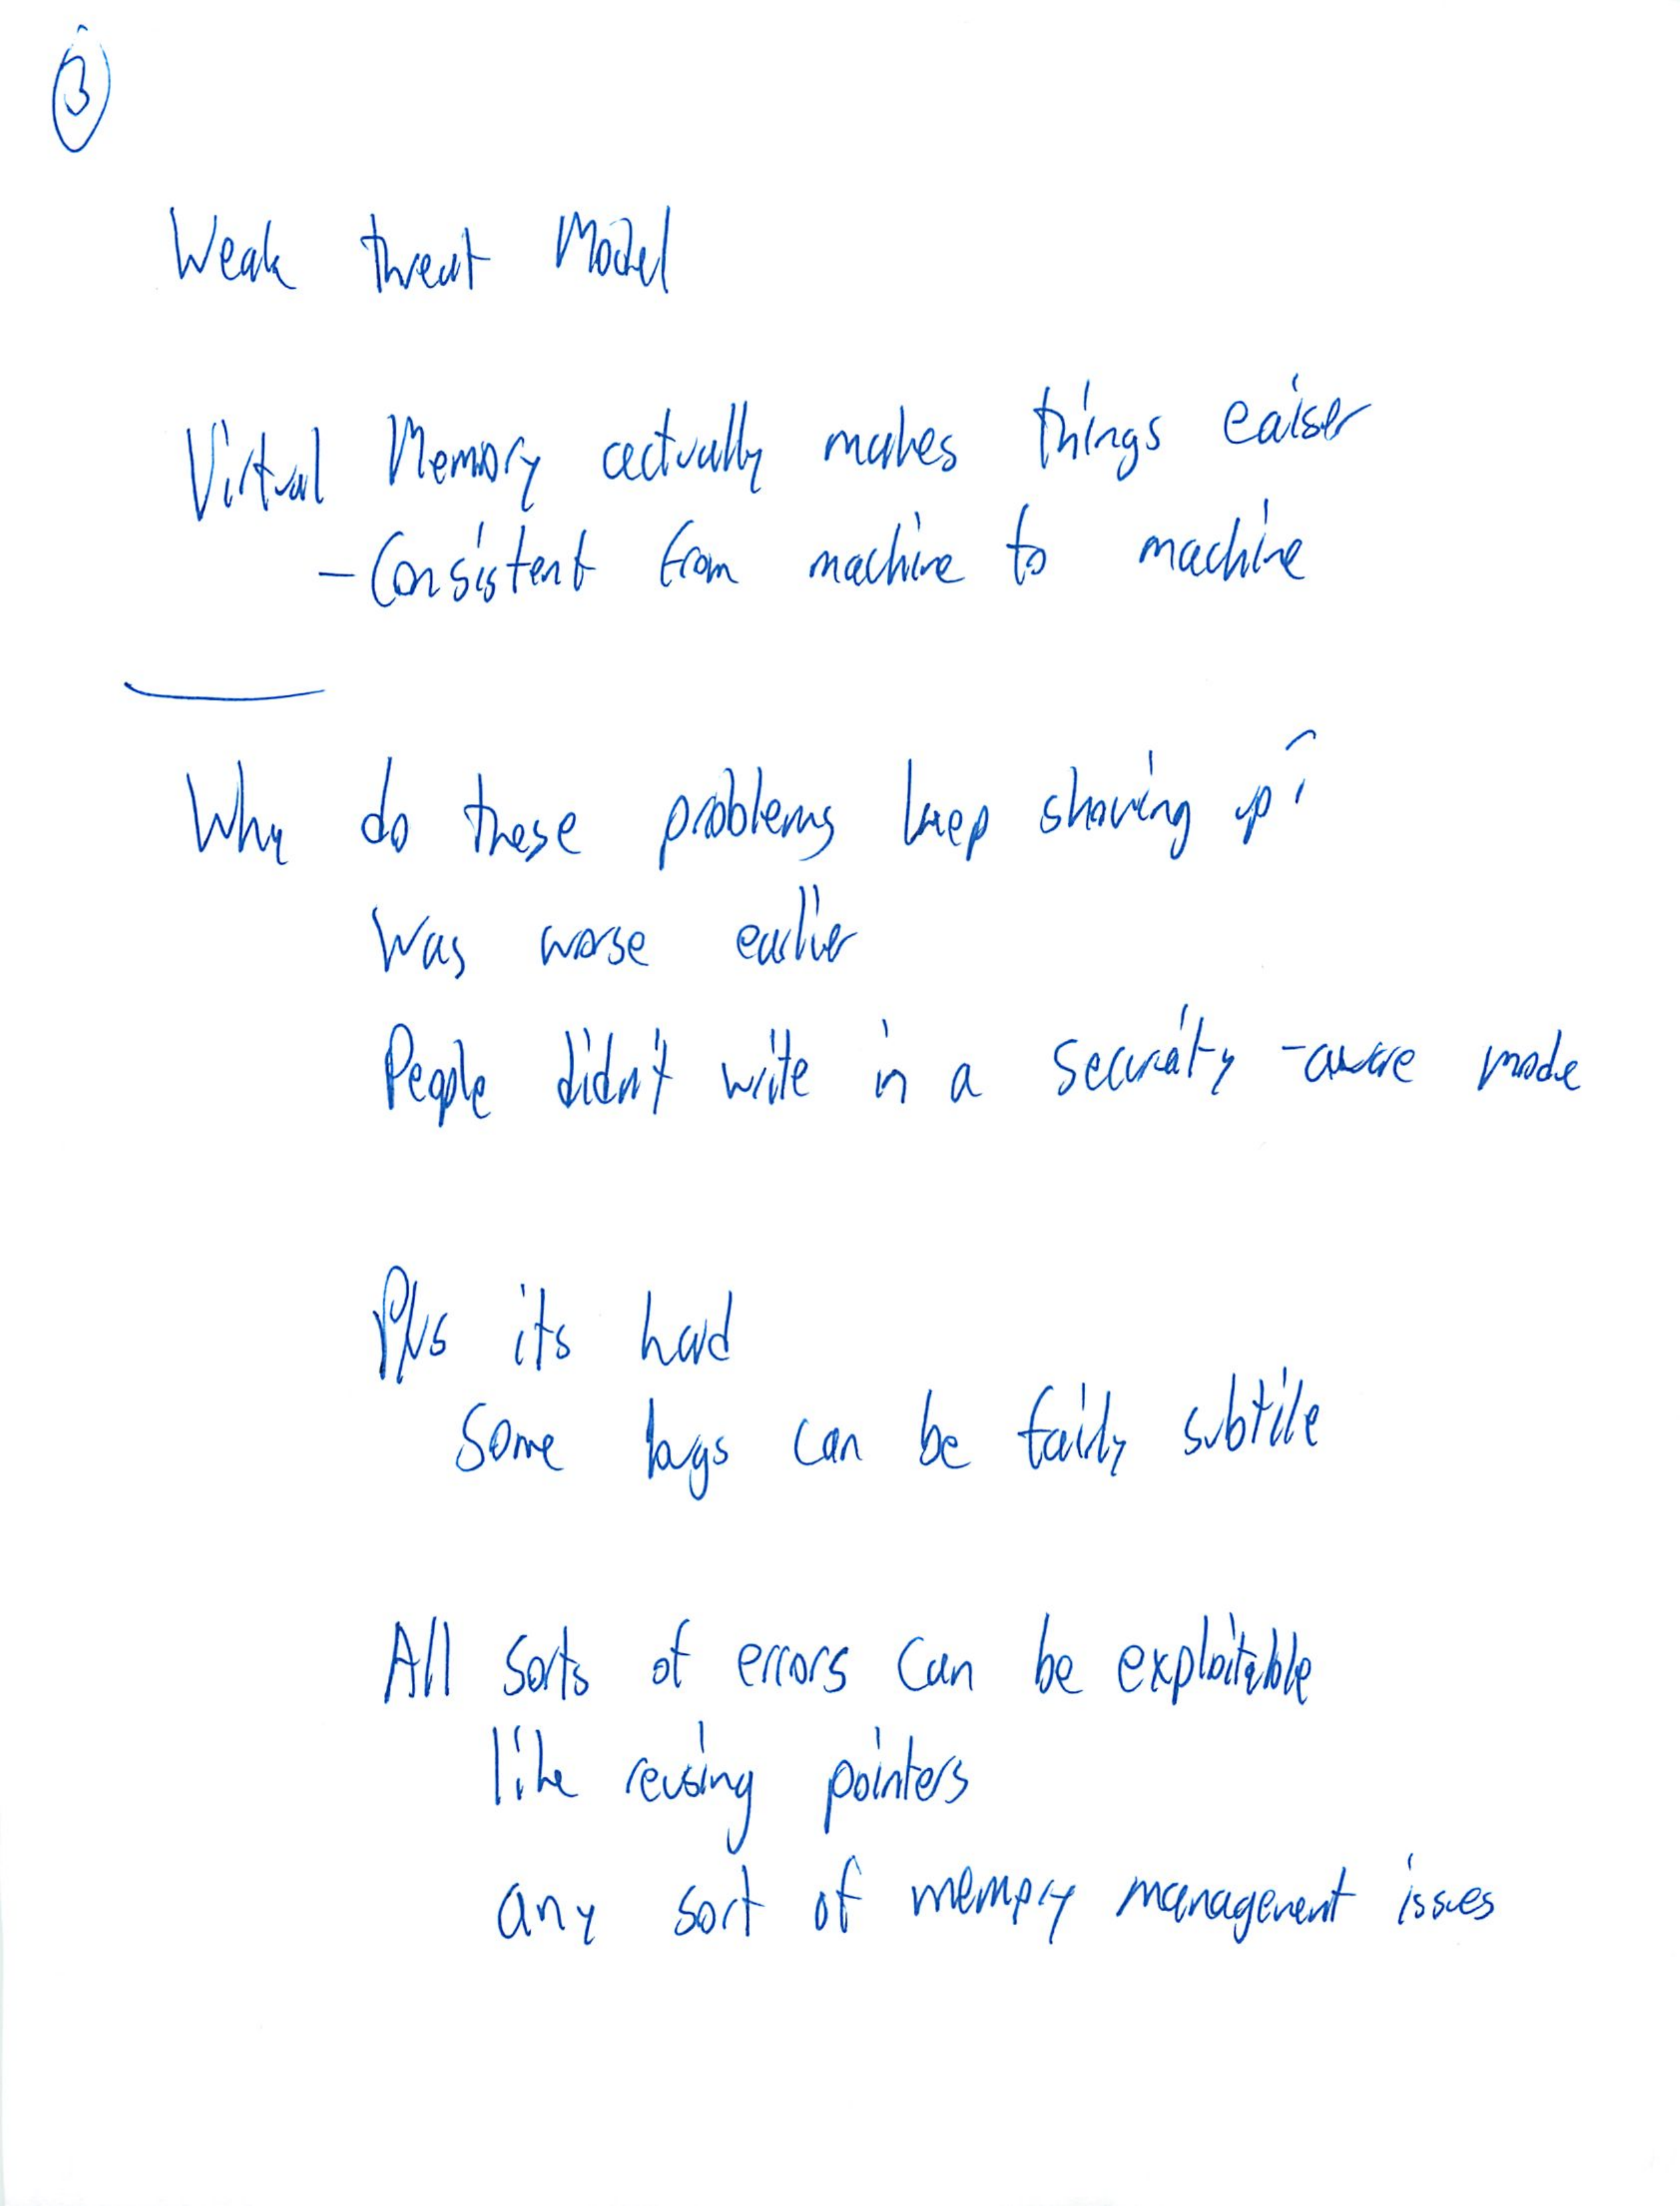 3
Weak threat Model
Virtual Memory actually makes things eaiser
- Consistent from machine to machine
Why do these problems keep showing up?
Was worse earlier
People didn't write in a security-aware mode
Plus its hard
Some bugs can be fairly subtile
All sorts of errors can be exploitable
like reusing pointers
any sort of memory management issues